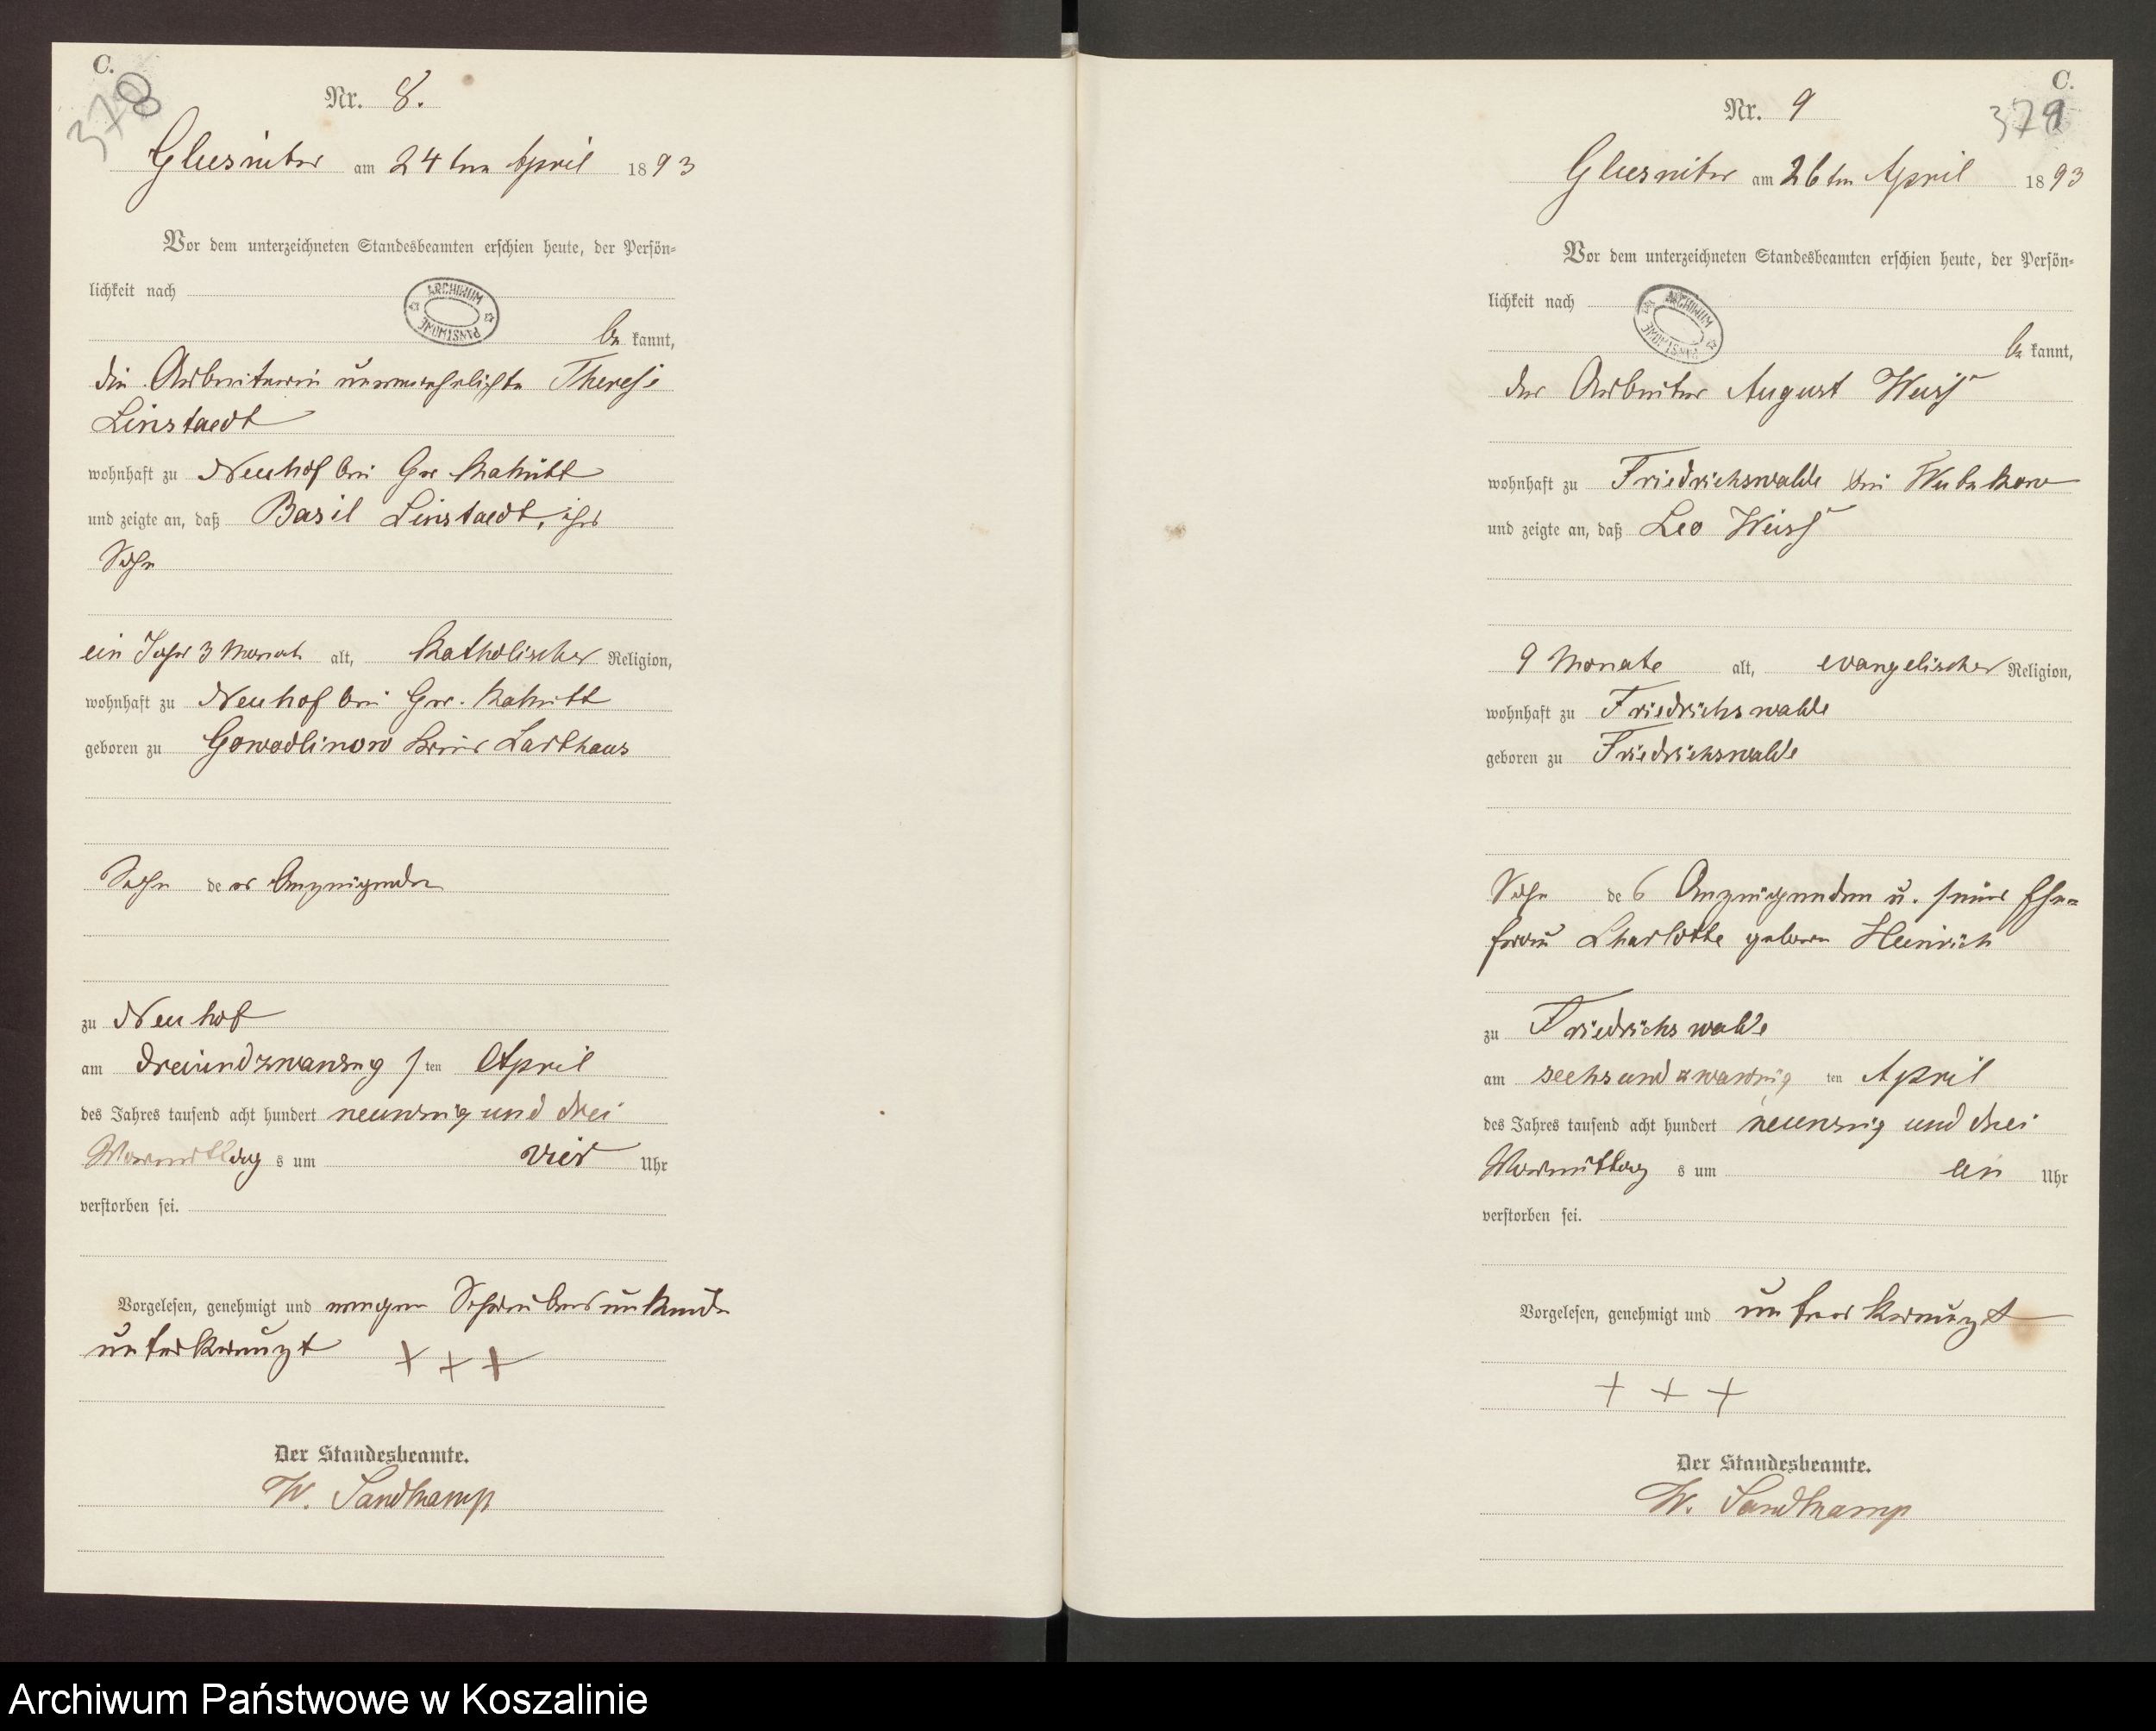 C.
378
Nr. 8.
Glusnitz am 24ten April 1893
Vor dem unterzeichneten Standesbeamten erschien heute, der Persön-
lichkeit nach
ARCHIWUM PAŃSTWOWE
be kannt,
die Arbeiterin unverehelichte Therese
Linstaedt
wohnhaft zu Neuhof bei Gr.
und zeigte an, daß Basil Linstaedt, ihr
Sohn
ein Jahr 3 Monat alt, katholischer Religion,
wohnhaft zu Neuhof bei Gr.
geboren zu Gowodlinow Kreis Carthaus
Sohn der Anzeigenden
zu Neuhof
am dreiundzwanzigsten April
des Jahres tausend acht hundert neunzig und drei
Vormittags um vier Uhr
verstorben sei.
Vorgelesen, genehmigt und wegen Schreibensunkunde
unterkreuzt + + +
Der Standesbeamte.
W. Sandkamp
C.
379
Nr. 9
am 26ten April 1893
Vor dem unterzeichneten Standesbeamten erschien heute, der Persön-
lichkeit nach
ARCHIWUM PAŃSTWOWE
be kannt,
der Arbeiter August Weiß
wohnhaft zu Friedrichswalde bei
und zeigte an, daß Leo Weiß
9 Monate alt, evangelischer Religion,
wohnhaft zu Friedrichswalde
geboren zu Friedrichswalde
Sohn des Anzeigenden u. seiner Ehe-
frau Charlotte geboren Heinrich
zu Friedrichswalde
am sechsundzwanzigten April
des Jahres tausend acht hundert neunzig und drei
Vormittags um ein Uhr
verstorben sei.
Vorgelesen, genehmigt und unterkreuzt
+ + +
Der Standesbeamte.
W. Sandkamp
Archiwum Państwowe w Koszalinie